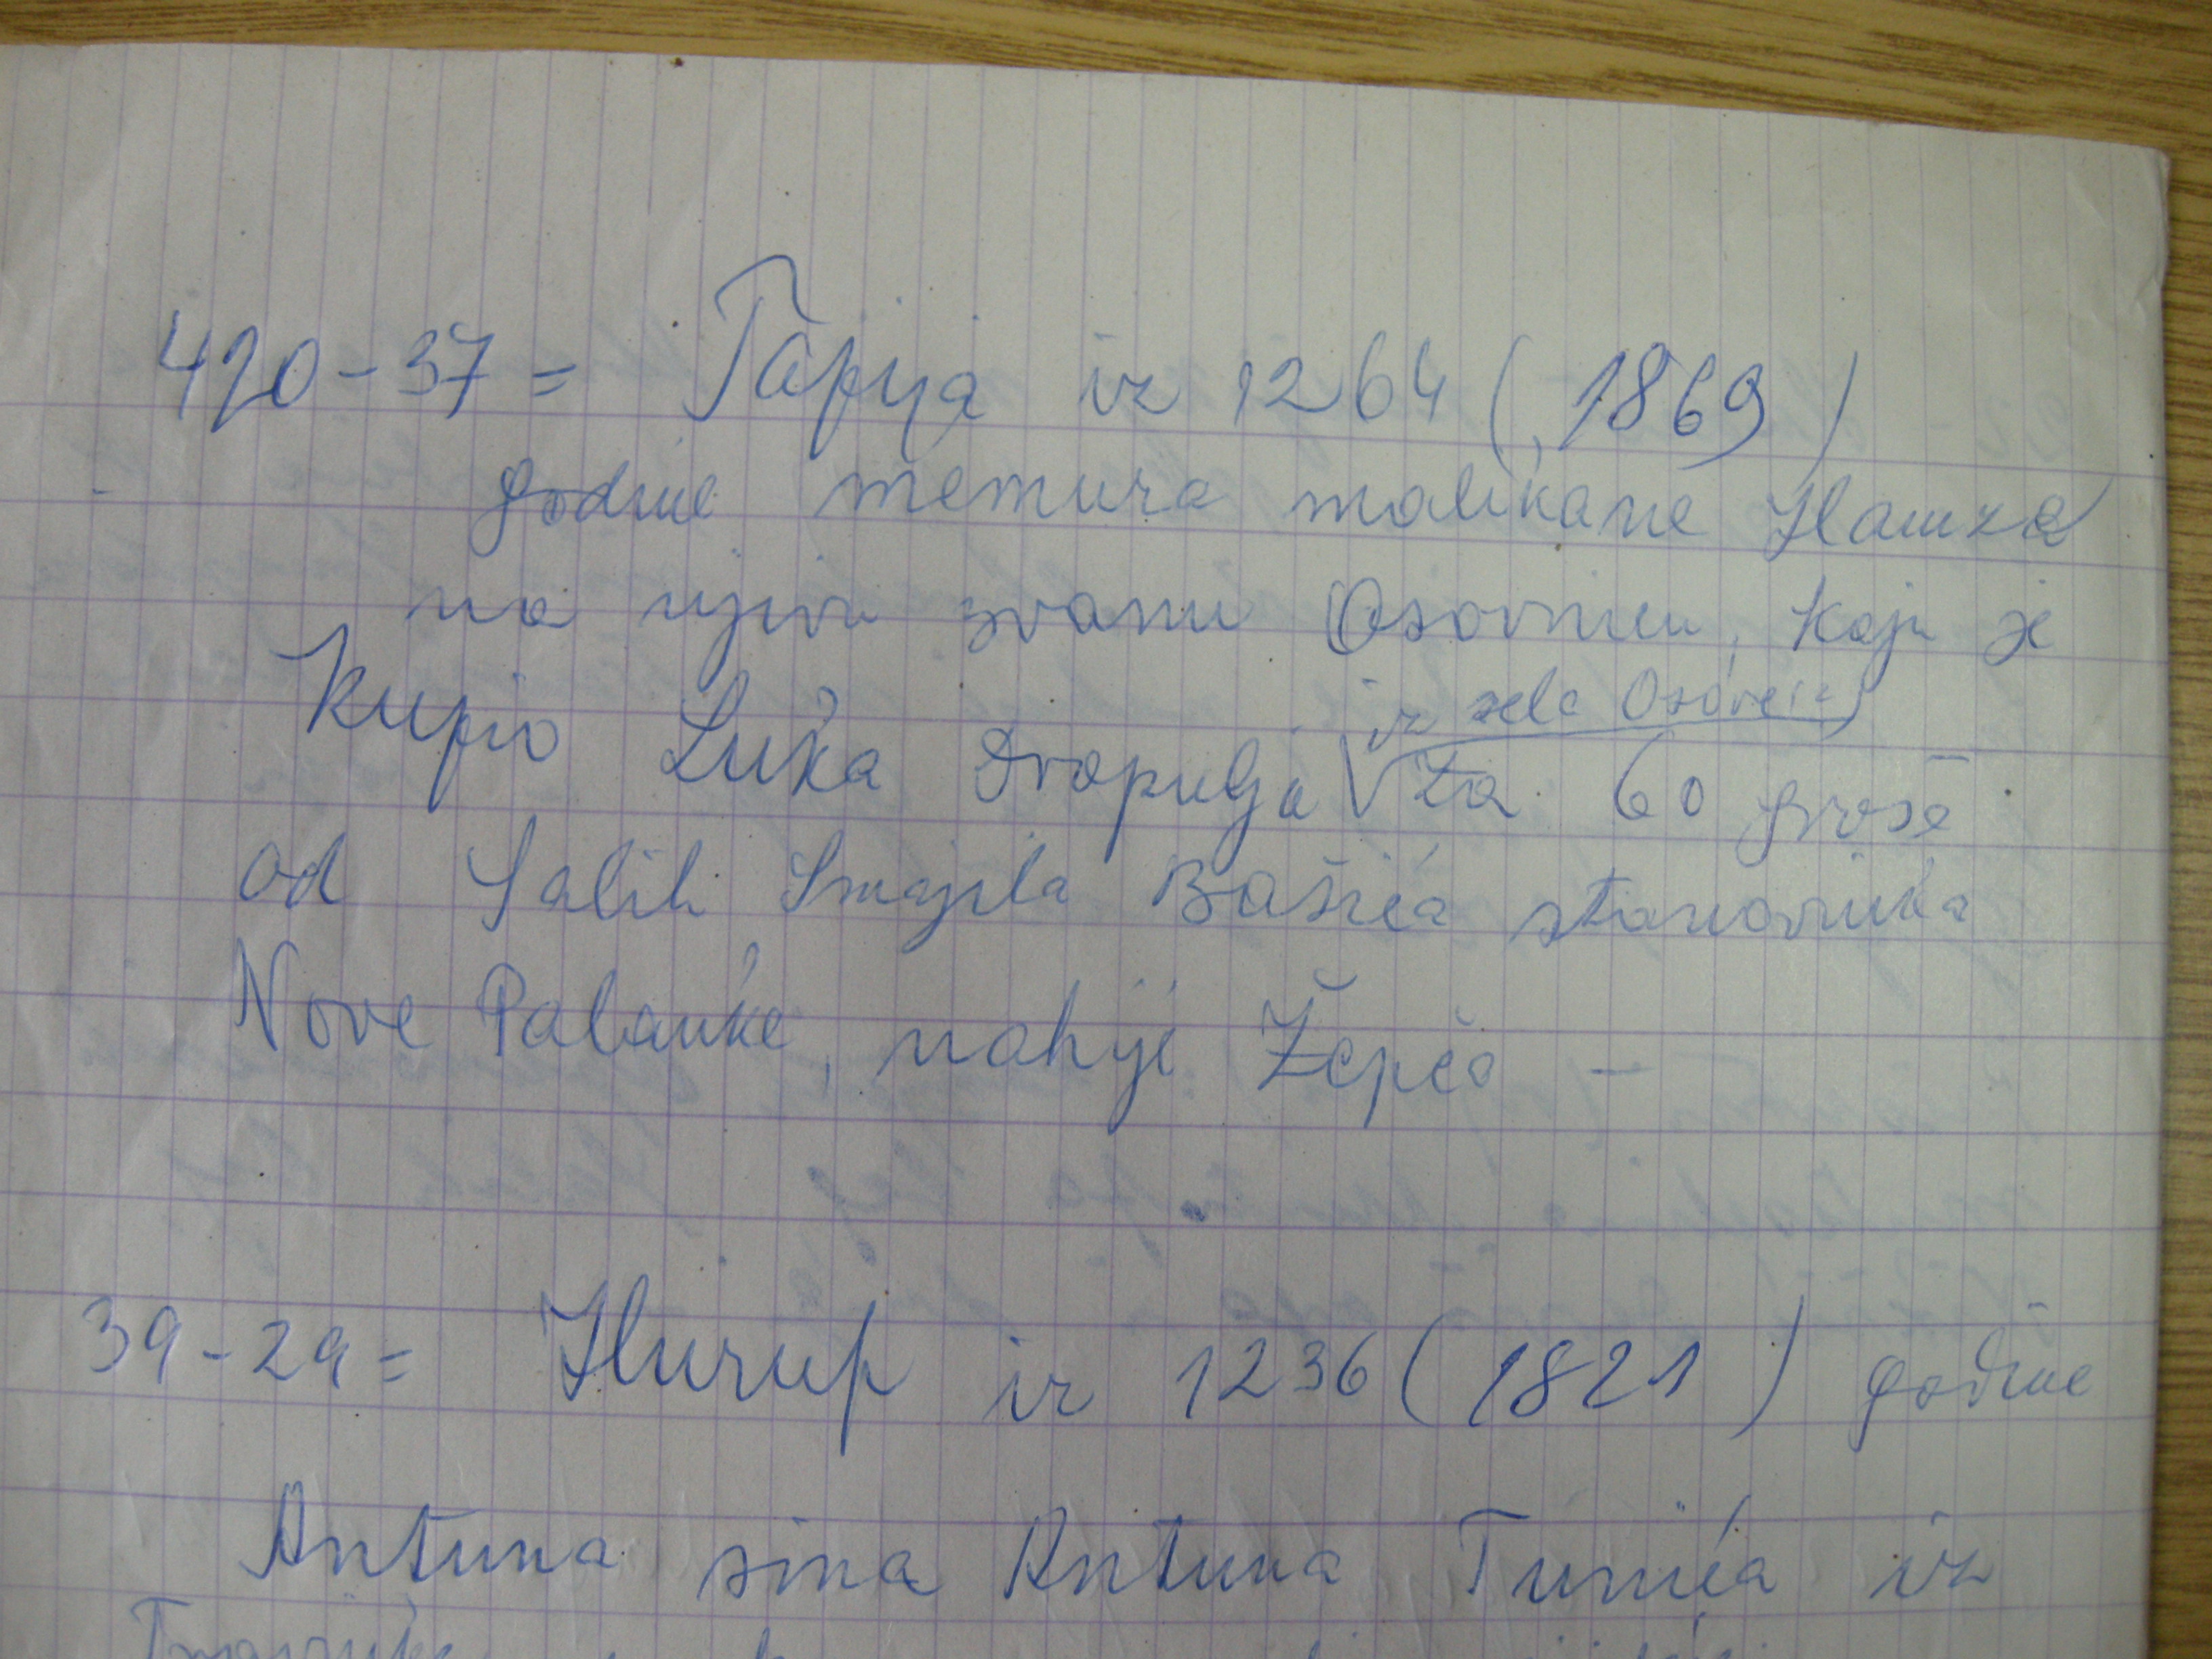 420-37= Tapija iz 1264 (1869)
godine memura malikane Hamza
na njivu zvanu Osovnicu, koju je
iz sela Osovice
kupio Luka Dropulja za 60 groša
od Salih Smajila Bašića stanovnika
Nove Palanke, nahije Žepča –
39-29= Hurup iz 1236 (1821) godine
Antuna sina Antuna Tunića iz